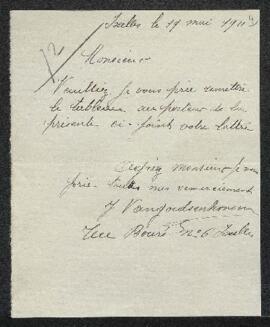 Ixelles le 19 mai 19
12
Monsieur
Veuillez je vous prie remettre
le tableau au porteur de la
présente ci-joint votre lettre
Agréez Monsieur je vous
prie toutes mes remerciements
J
Rue N° 6 Ixelles